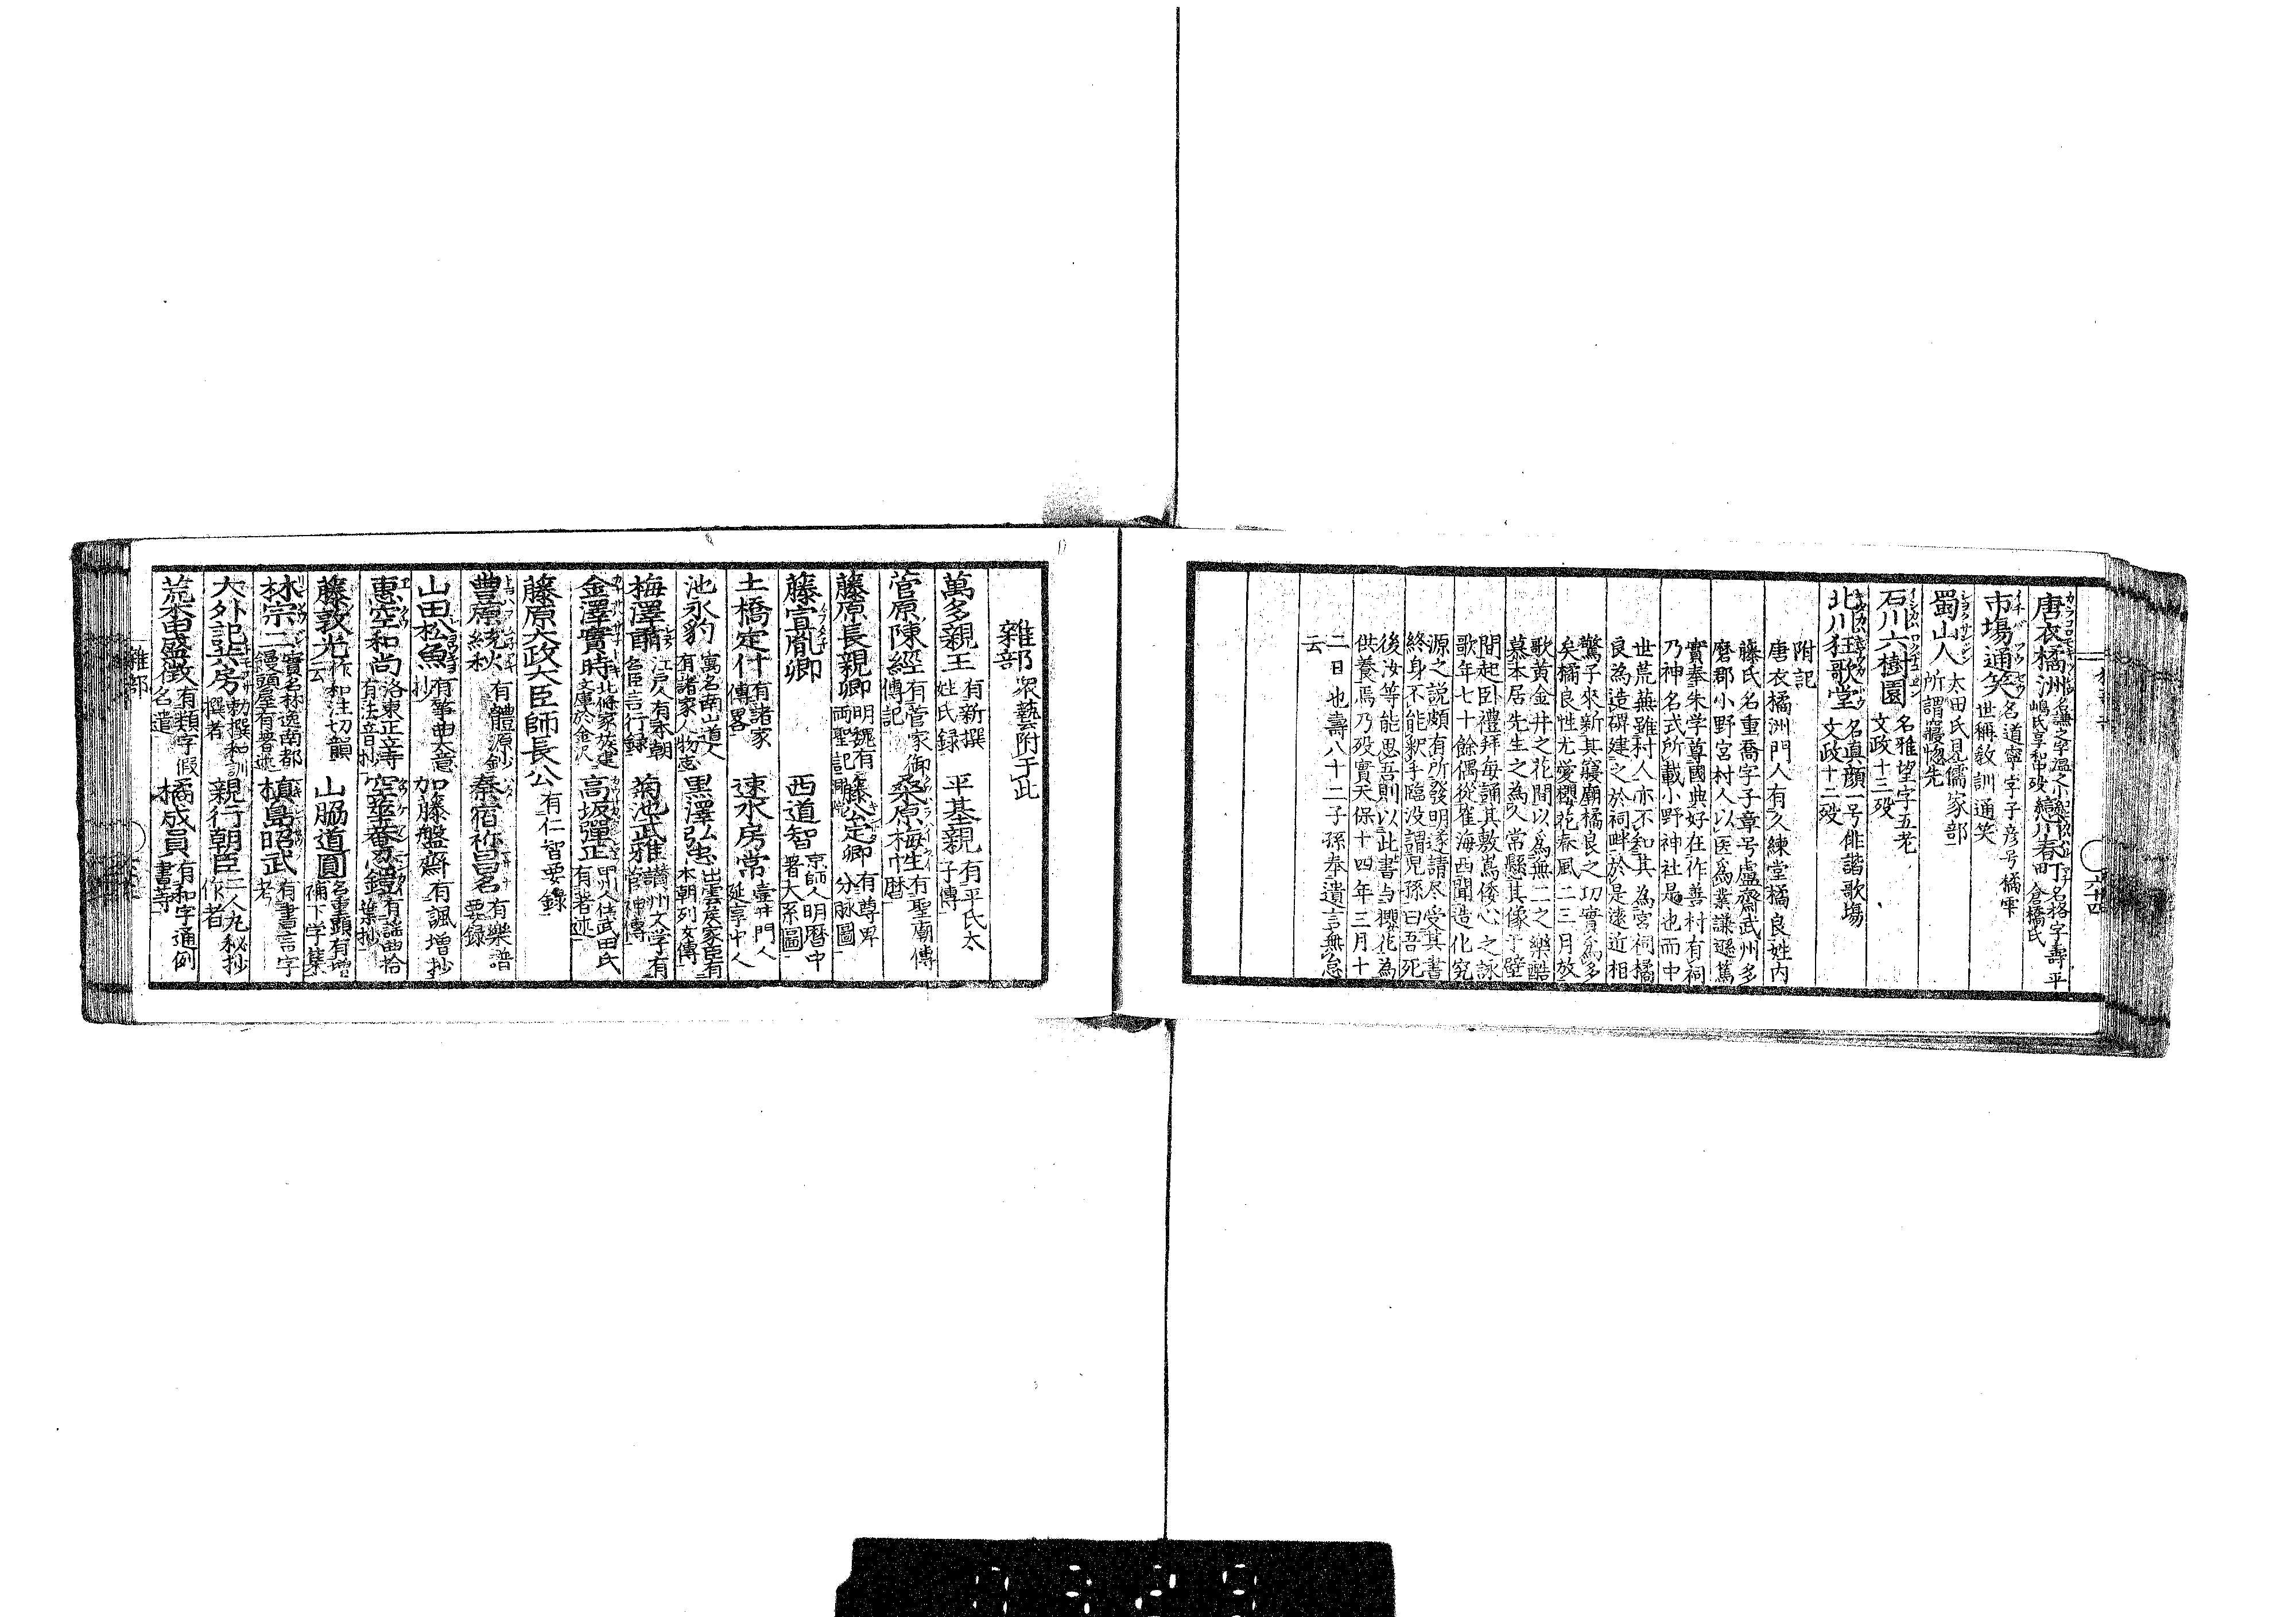 唐衣橘洲 名謙之字温之小 嶋氏享和中歿 戀川春町 名格字壽平 倉橋氏
市場通笑 名道寧字子彦号橘雫 世稱教訓通笑
蜀山人 太田氏見儒家部 所謂寢惚先
石川六樹園 名雅望字五老 文政十三歿
北川狂歌堂 名真顔一号俳諧歌場 文政十二歿
附記
唐衣橘洲門人有久練堂橘良姓内
藤氏名重喬字子章号盧齋武州多
磨郡小野宮村人以医爲業謙遜篤
實奉朱学尊國典好在作善村有祠
乃神名式所載小野神社是也而中
世荒蕪雖村人亦不知其為宮祠橘
良為造碑建之於祠畔於是遠近相
驚子來新其寢廟橘良之功實爲多
矣橘良性尤愛櫻花春風二三月放
歌黄金井之花間以爲無二之樂酷
慕本居先生之為久常懸其像于壁
間起臥禮拜毎誦其敷嶌倭心之詠
歌年七十餘偶從崔海西聞造化究
源之説頗有所發明遂請尽受其書
終身不能釈手臨没謂兒孫曰吾死
後汝等能思吾則以此書与櫻花為
供養焉乃歿實天保十四年三月十
二日也壽八十二子孫奉遺言無怠
云
六十四
雜部 衆藝附于此
萬多親王 有新撰 姓氏録 平基親 有平氏太 子傳
菅原陳經 有菅家御 傳記 桑原梅生 有聖廟傳 暦
藤原長親卿 明魏有 両聖記 藤公定卿 有尊卑 分脉圖
藤宣胤卿 西道智 京師人明暦中 著大系圖
土橋定什 有諸家 傳畧 速水房常 壺井門人 延享中人
池永豹 寓名南山道人 有諸家人物志 黒澤弘忠 出雲侯家臣有 本朝列女傳
梅澤 江戸人有本朝 名臣言行録 菊池武雅 讃州文学有 菅神傳
金澤實時 北條家族建 文庫於金沢 高坂彈正 甲州人仕武田氏 有著述
藤原太政大臣師長公 有仁智要錄
豊原統秋 有體源鈔 秦宿祢昌名 有樂譜 要録
山田松魚 有箏曲大意 抄 加藤盤齋 有諷増抄
惠空和尚 洛東正立寺 有法音抄 空華菴忍鎧 有謡曲拾 葉抄
藤敦光 作和注切韻 云 山脇道圓 名重顕有増 補下学集
林宗二 實名林逸南都 饅頭屋有著述 槙島昭武 有書言字 考
大外記 勅撰和訓 撰者 親行朝臣 二人九秘抄 作者
荒木田盛徴 有類字假 名遣 橘成員 有和字通例 書等
雜部